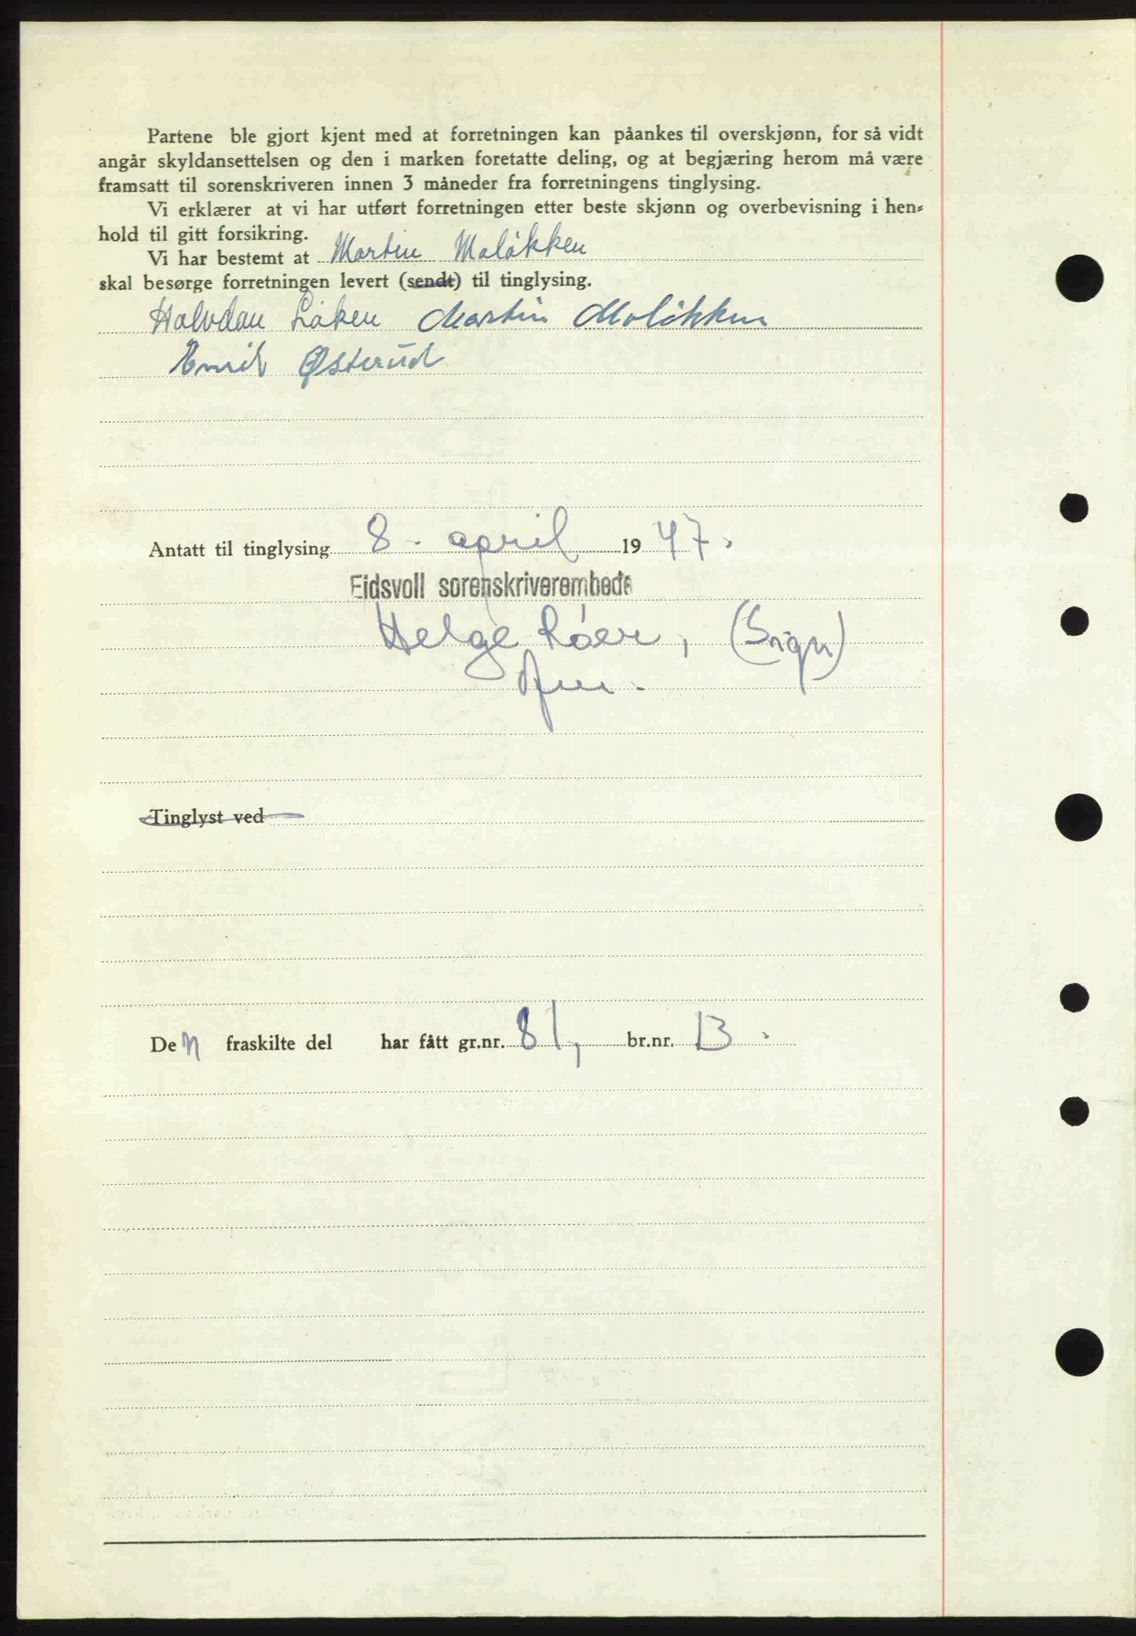 Partene ble gjort kjent med at forretningen kan påankes til overskjønn, for så vidt
angår skyldansettelsen og den i marken foretatte deling, og at begjæring herom må være
framsatt til sorenskriveren innen 3 måneder fra forretningens tinglysing.
Vi erklærer at vi har utført forretningen etter beste skjønn og overbevisning i hen-
hold til gitt forsikring.
Vi har bestemt at Martin Moløkken
skal besørge forretningen levert (sendt) til tinglysing.
Halvdan Løken Martin Moløkken
Emil Østerud
Antatt til tinglysing 8. april 1947.
Eidsvoll sorenskriverembede
Helge Røer, (Sign)
Tinglyst ved
Den fraskilte del har fått gr.nr. 81, br.nr. 13.